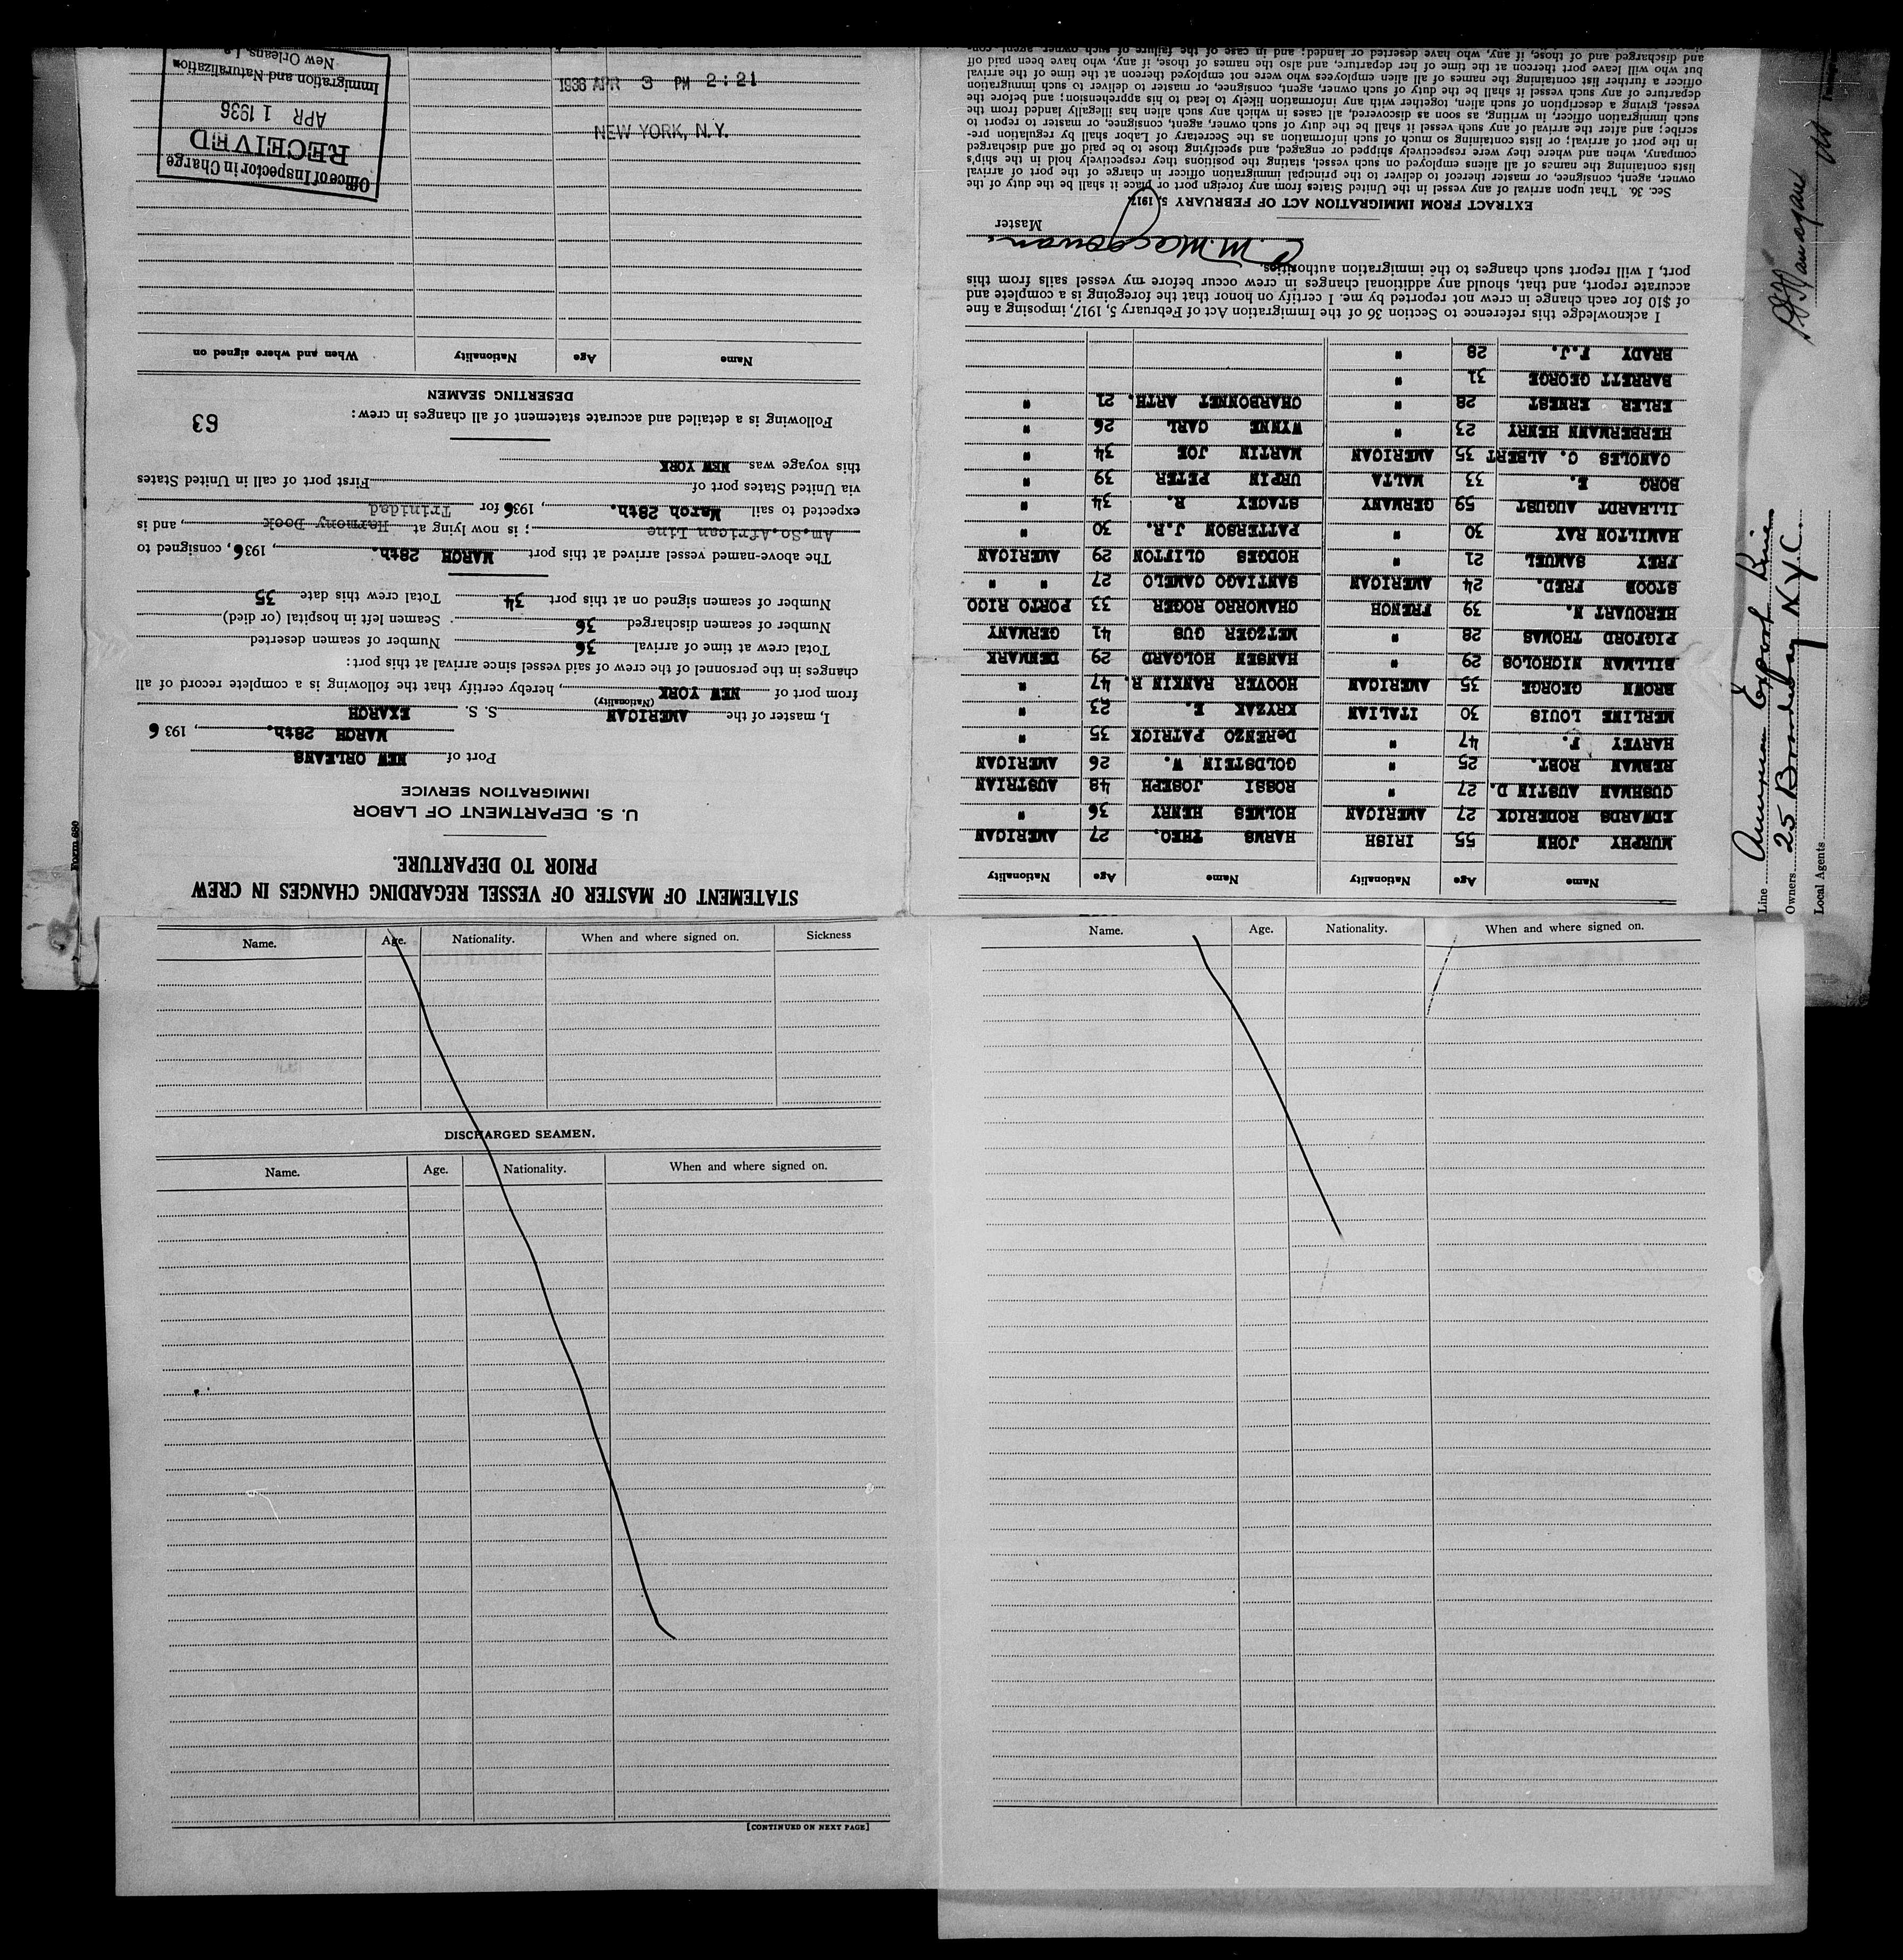 Form 680
STATEMENT OF MASTER OF VESSEL REGARDING CHANGES IN CREW
PRIOR TO DEPARTURE.
U. S. DEPARTMENT OF LABOR
IMMIGRATION SERVICE
Port of NEW ORLEANS
MARCH 28th. , 1936
I, master of the AMERICAN S. S. EXARCH
(Nationality)
from port of NEW YORK , hereby certify that the following is a complete record of all
changes in the personnel of the crew of said vessel since arrival at this port:
Total crew at time of arrival 36 Number of seamen deserted
Number of seamen discharged 36 Seamen left in hospital (or died)
Number of seamen signed on at this port 34 Total crew this date 35
The above-named vessel arrived at this port MARCH 28th. , 1936, consigned to
Am.So.African Line ; is now lying at Harmony Dock , and is
expected to sail March 28th. , 1936 for Trinidad
via United States port of First port of call in United States
this voyage was NEW YORK
Following is a detailed and accurate statement of all changes in crew:
63
DESERTING SEAMEN
Name Age Nationality When and where signed on
NEW YORK, N.Y.
1936 APR 3 PM 2:21
Office of Inspector in Charge
RECEIVED
APR 1 1936
Immigration and Naturalization
New Orleans, La.
Name Age Nationality Name Age Nationality
MURPHY JOHN 55 IRISH HARMS THEO. 27 AMERICAN
EDWARDS RODERICK 27 AMERICAN HOLMES HENRY 36 "
CUSHMAN AUSTIN D. 27 " ROSSI JOSEPH 48 AUSTRIAN
REHMAN ROBT. 25 " GOLDSTEIN W. 26 AMERICAN
HARVEY F. 47 " DeRENZO PATRICK 35 "
MERLINE LOUIS 30 ITALIAN KRYZAK E. 23 "
BROWN GEORGE 35 AMERICAN HOOVER RANKIN R. 47 "
BILLMAN NICHOLOS 29 " HANSEN HOLGARD 29 DENMARK
PIGFORD THOMAS 28 " METZGER GUS 41 GERMANY
HERQUART N. 39 FRENCH CHAMORRO ROGER 33 PORTO RICO
STOOB FRED. 24 AMERICAN SANTIAGO CAMELO 27 " "
FREY SAMUEL 21 " HODGES CLIFTON 29 AMERICAN
HAMILTON RAY 30 " PATTERSON J.R. 30 "
ILLHARDT AUGUST 59 GERMANY STACEY R. 34 "
BORG E. 33 MALTA URPIN PETER 39 "
CANOLES C. ALBERT 35 AMERICAN MARTIN JOE 34 "
HERBERMANN HENRY 23 " WYNNE CARL 26 "
ERLER ERNEST 28 " CHARBONNET ARTH. 21 "
BARRETT GEORGE 31 "
BRADY F.J. 28 "
I acknowledge this reference to Section 36 of the Immigration Act of February 5, 1917, imposing a fine
of $10 for each change in crew not reported by me. I certify on honor that the foregoing is a complete and
accurate report, and that, should any additional changes in crew occur before my vessel sails from this
port, I will report such changes to the immigration authorities.
C. M. Macgowan.
Master
EXTRACT FROM IMMIGRATION ACT OF FEBRUARY 5, 1917.
Sec. 36. That upon arrival of any vessel in the United States from any foreign port or place it shall be the duty of the
owner, agent, consignee, or master thereof to deliver to the principal immigration officer in charge of the port of arrival
lists containing the names of all aliens employed on such vessel, stating the positions they respectively hold in the ship's
company, when and where they were respectively shipped or engaged, and specifying those to be paid off and discharged
in the port of arrival; or lists containing so much of such information as the Secretary of Labor shall by regulation pre-
scribe; and after the arrival of any such vessel it shall be the duty of such owner, agent, consignee, or master to report to
such immigration officer, in writing, as soon as discovered, all cases in which any such alien has illegally landed from the
vessel, giving a description of such alien, together with any information likely to lead to his apprehension; and before the
departure of any such vessel it shall be the duty of such owner, agent, consignee, or master to deliver to such immigration
officer a further list containing the names of all alien employees who were not employed thereon at the time of the arrival
but who will leave port thereon at the time of her departure, and also the names of those, if any, who have been paid off
and discharged and of those, if any, who have deserted or landed; and in case of the failure of such owner agent con-
Line American Export Line
Owners 25 Broadway N.Y.C.
Local Agents
Name. Age. Nationality. When and where signed on. Sickness
DISCHARGED SEAMEN.
Name. Age. Nationality. When and where signed on.
[CONTINUED ON NEXT PAGE]
Name. Age. Nationality. When and where signed on.